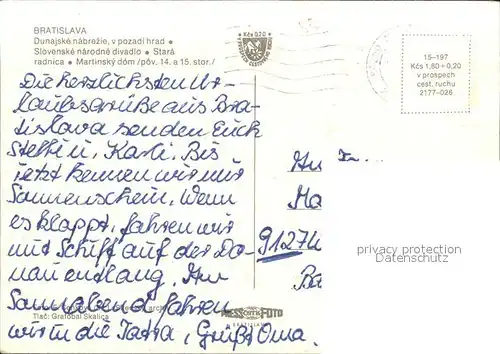 BRATISLAVA
Dunajské nábrežie, v pozadí hrad •
Slovenské národné divadlo • Stará
radnica • Martinský dóm /pôv. 14. a 15. stor./
Kčs 0,20
15–197
Kčs 1,60 + 0,20
v prospech
cest. ruchu
2177-026
Die herzlichsten Ur-
laubsgrüße aus Bra-
tislava senden Euch
Steffi u. Karli. Bis
jetzt kennen wir nur
Sonnenschein. Wenn
es klappt, fahren wir
mit Schiff auf der Do-
nau entlang. Am
Sonnabend fahren
wir in die Tatra, Grüßt Oma.
Tlač: Grafobal Skalica
PRESSFOTO
BRATISLAVA
9127
privacy protection
Datenschutz